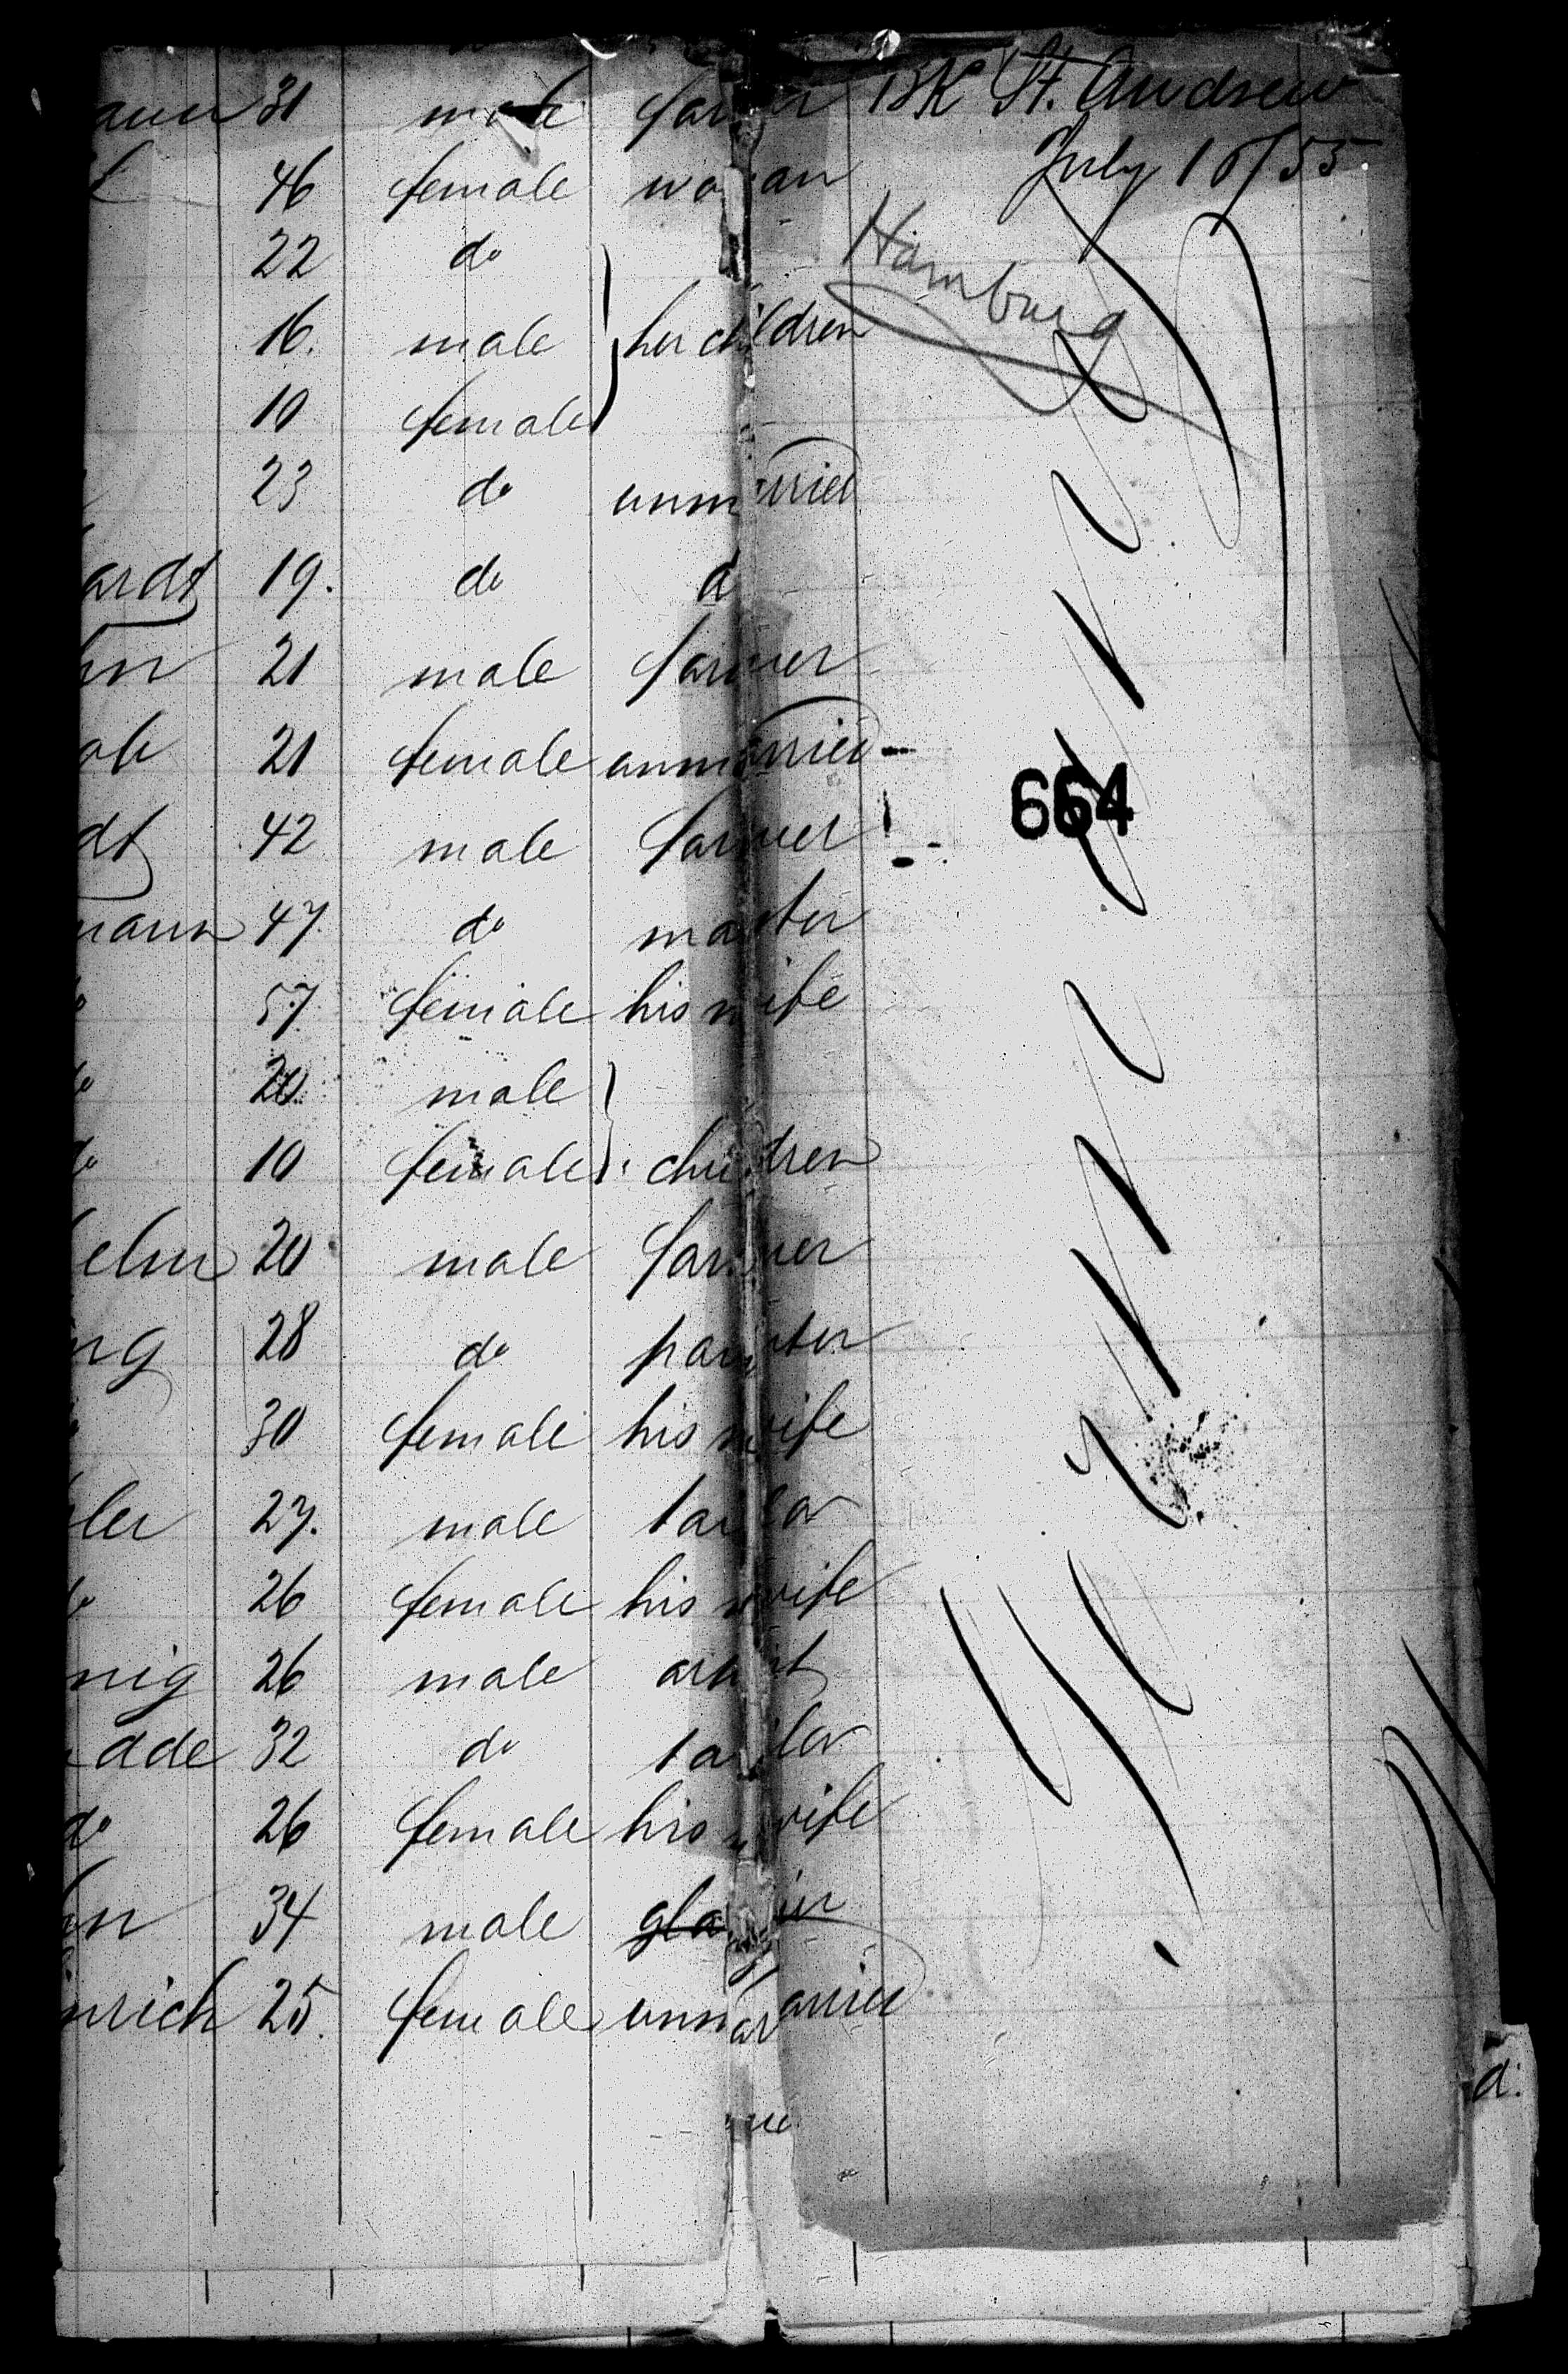 31 male farmer
46 female woman
22 do
16. male her children
10 female
23 do unmarried
ardt 19. do d
hn 21 male farmer
21 female unmarried
dt 42 male farmer
mann 47 do master
57 female his wife
20 male
do 10 female children
helm 20 male farmer
ng 28 do painter
30 female his wife
ler 27. male tailor
do 26 female his wife
nig 26 male artist
adde 32 do tailor
do 26 female his wife
hn 34 male glazier
nrich 25. female unmarried
Bk St. Andrew
July 16/55
Hamburg
664
Germany
d.